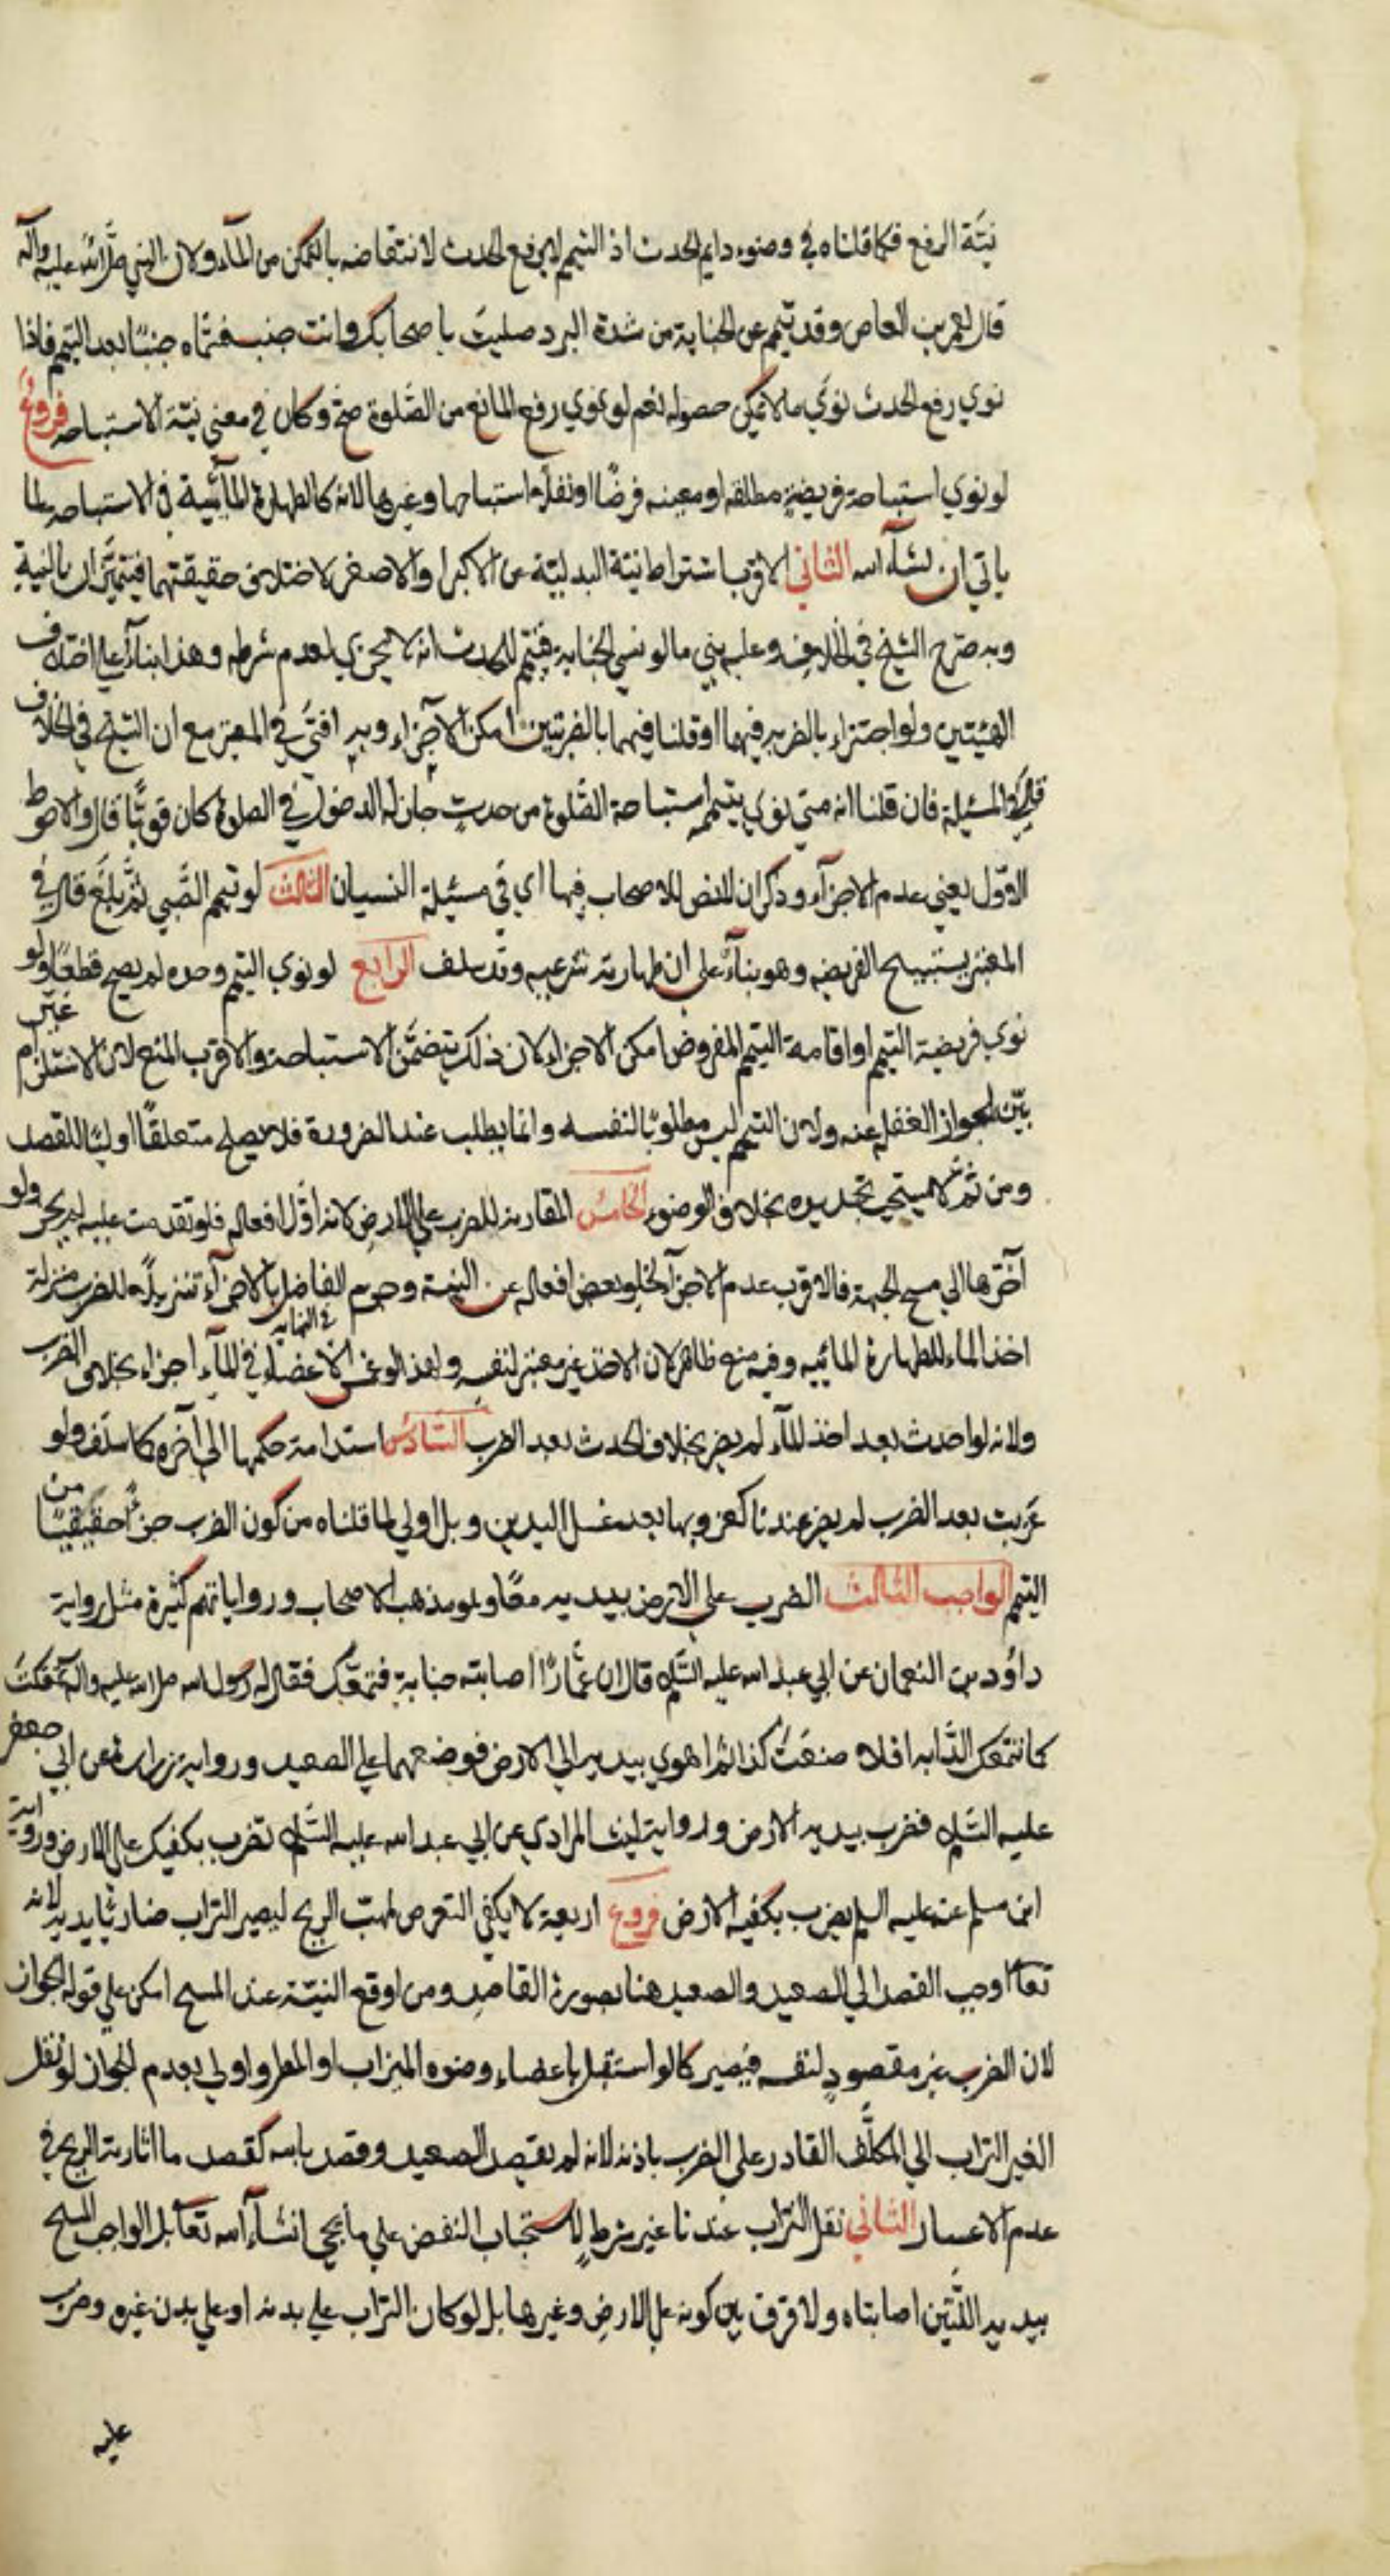 نيّة الرفع فكما قلناه في وضوء دايم الحدث اذ التيمم لا يرفع الحدث لانتقاضه بالتمكن من المآء ولان النبي صلى الله عليه وآله
قال لعمرو بن العاص وقد تيمم عن الجنابة من شدة البرد صليت باصحابك وانت جنب فسماه جنبًا بعد التيمم فاذا
نوي رفع الحدث نوي ما لا يمكن حصوله نعم لو نوي رفع المانع من الصّلوة صح وكان في معني نيّة الاستباحه فروع
لو نوي استباحة فريضةٍ مطلقه او معينه فرضًا او نفلًا استباحها وغيرها لانه كالطهارة المآئية في الاستباحه لما
ياتي ان شآء الله الثاني الاقرب اشتراط نيّة البدليّة عن الاكبر او الاصغر لاختلاف حقيقتهما فيتميّزان بالنية
وبه صرّح الشيخ في الخلاف وعليه بني ما لو نسي الجنابة فتيمم للحدث انه لا يجزي لعدم شرطه وهذا بناءً علي اختلاف
الهيئتين ولو اجتزاء بالضربه فيهما او قلنا فيهما بالضربتين امكن الاجزاء وبه افتي في المعتبر مع ان الشيخ في الخلاف
المسئلة فان قلنا انه متي نوي بتيممه استباحة الصّلوة من حدثٍ جاز له الدخول في الصلوة كان قويًّا قال والاحوط
الاوّل يعني عدم الاجزآء وذكر ان لا نص للاصحاب فيها اي في مسئلة النسيان الثالث لو تيمم الصّبي ثم بلغ قال في
المعتبر يستبيح الفريضه وهو بنآءً علي ان طهارته شرعيه وقد سلف الرابع لو نوي التيمم وحده لم يصح قطعًا ولو
نوي فريضة التيمم او اقامة التيمم المفروض امكن الاجزاء لان ذلك يتضمّن الاستباحة والاقرب المنع لان الاستلزام غير
بيّن لجواز الغفلة عنه ولان التيمم ليس مطلوبًا لنفسه وانما يطلب عند الضرورة فلا يصلح متعلقًا اوليًّا للقصد
ومن ثمّ لا يستحب تجديده بخلاف الوضوء الخامس المقارنه للضرب علي الارض لانه اوّل افعاله فلو تقدمت عليه لم يجز ولو
اخّرها الي مسح الجبهة فالاقرب عدم الاجزآء لخلو بعض افعاله عن النيّة وجزم الفاضل في النهايه بالاجزآء تنزيلًا للضرب منزلة
اخذ الماء للطهارة المائيه وفيه منع ظاهر لان الاخذ غير معتبر لنفسه ولهذا لو غمس الاعضاء في المآء اجزاء بخلاف الضرب
ولانه لو احدث بعد اخذ المآء لم يضر بخلاف الحدث بعد الضرب السّادس استدامة حكمها الي آخره كما سلف ولو
عزبت بعد الضرب لم يضر عندنا كعزوبها بعد غسل اليدين وبل اولي لما قلناه من كون الضرب جزءًا حقيقيًّا من
التيمم الواجب الثالث الضرب علي الارض بيديه معًا وهو مذهب الاصحاب ورواياتهم كثيرة مثل رواية
داؤد بن النعمان عن ابي عبد الله عليه السّلم قال ان عمّارًا اصابته جنابة فتمعّك فقال له رسول الله صلى الله عليه واله تمعّكت
كما تتمعك الدّابه افلا صنعت كذا ثم اهوي بيديه الي الارض فوضعهما علي الصعيد وروايه زرارة عن ابي جعفر
عليه السّلم فضرب بيديه الارض ورواية ليث المرادي عن ابي عبد الله عليه السّلم تضرب بكفيك علي الارض ورواية
ابن مسلم عنه عليه السلم يضرب بكفيه الارض فروع اربعة لا يكفي التعرض لمهبّ الريح ليصير التراب ضاربًا يديه لانه
تعالى اوجب القصد الي الصعيد والصعيد هنا بصورة القاصد ومن اوقع النيّة عند المسح امكن علي قوله الجواز
لان الضرب غير مقصودٍ لنفسه فيصير كما لو استقبل باعضاء وضوئه الميزاب او المطر واولي بعدم الجواز لو نقل
الغير التراب الي المكلّف القادر علي الضرب باذنه لانه لم يقصد الصعيد وقصد نائبه كقصد ما اثارته الريح في
عدم الاعتبار الثاني نقل التراب عندنا غير شرطٍ لاستحباب النفض علي ما يجئ انشآء الله تعآ بل الواجب المسح
بيديه اللّتين اصابتاه ولا فرق بين كونه علي الارض وغيرها بل لو كان التراب علي بدنه او علي بدن غيره وضرب
عليه